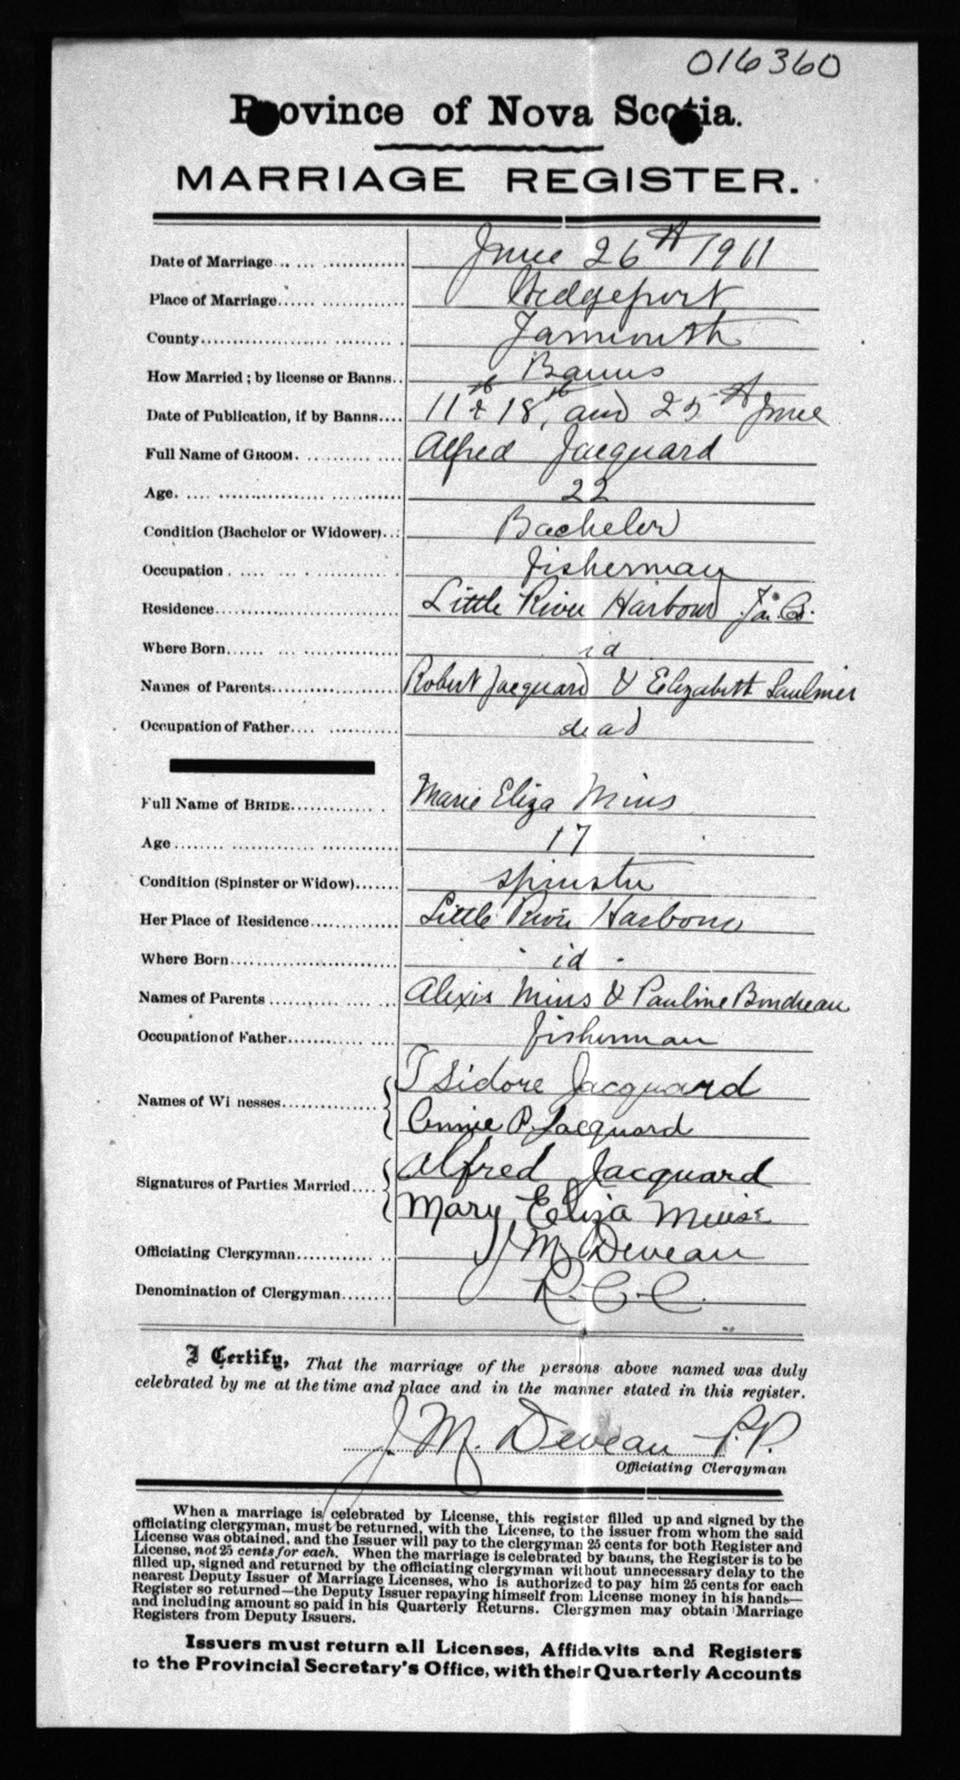 016360
Province of Nova Scotia.
MARRIAGE REGISTER.
Date of Marriage... June 26th 1911
Place of Marriage... Wedgeport
County... Yarmouth
How Married; by license or Banns.. Banns
Date of Publication, if by Banns.... 11th & 18th, and 25th June
Full Name of GROOM. Alfred Jacquard
Age. 22
Condition (Bachelor or Widower)... Bachelor
Occupation . Fisherman
Residence... Little River Harbour Yar. Co.
Where Born... id
Names of Parents... Robert Jacquard & Elizabeth Saulnier
Occupation of Father... dead
Full Name of BRIDE... Marie Eliza Mius
Age... 17
Condition (Spinster or Widow)... spinster
Her Place of Residence... Little River Harbour
Where Born... id.
Names of Parents ... Alexis Mius & Pauline Boudreau
Occupation of Father... fisherman
Names of Wi nesses... Isidore Jacquard
Annie P. Jacquard
Signatures of Parties Married.... Alfred Jacquard
Mary Eliza Meuse
Officiating Clergyman... J M Deveau
Denomination of Clergyman... R.C.C.
I Certify, That the marriage of the persons above named was duly
celebrated by me at the time and place and in the manner stated in this register.
J. M. Deveau P.P.
Officiating Clergyman
When a marriage is celebrated by License, this register filled up and signed by the
officiating clergyman, must be returned, with the License, to the issuer from whom the said
License was obtained, and the Issuer will pay to the clergyman 25 cents for both Register and
License, not 25 cents for each. When the marriage is celebrated by banns, the Register is to be
filled up, signed and returned by the officiating clergyman without unnecessary delay to the
nearest Deputy Issuer of Marriage Licenses, who is authorized to pay him 25 cents for each
Register so returned—the Deputy Issuer repaying himself from License money in his hands—
and including amount so paid in his Quarterly Returns. Clergymen may obtain Marriage
Registers from Deputy Issuers.
Issuers must return all Licenses, Affidavits and Registers
to the Provincial Secretary's Office, with their Quarterly Accounts